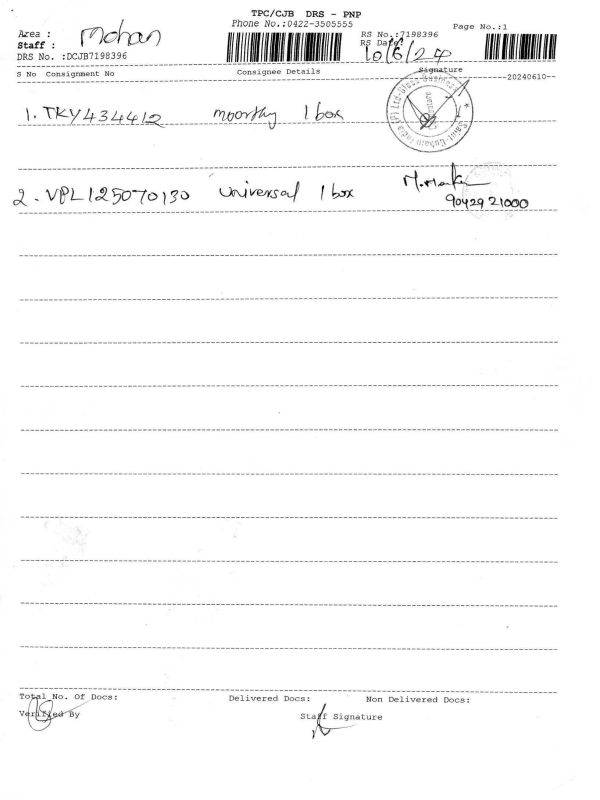 TPC/CJB DRS - PNP
Phone No.:0422-3505555
Page No.:1
Area :
Staff : Mohan
DRS No. :DCJB7198396
RS No.:7198396
RS Date:
10/6/24
S No Consignment No Consignee Details Signature
--20240610--
1. TKY434412 moorthy 1 box
2. VPL125070130 universal 1 box
90429 21000
Total No. Of Docs: Delivered Docs: Non Delivered Docs:
Verified By
Staff Signature